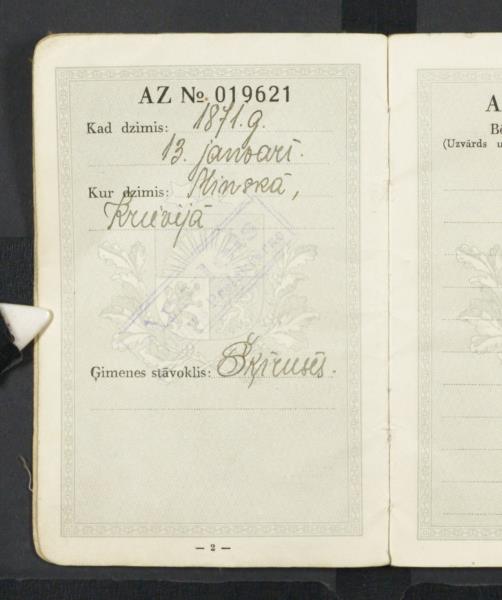 AZ № 019621
Kad dzimis: 1871.g.
13. janvarī.
Kur dzimis: Minskā,
Krievijā
Ģimenes stāvoklis: Šķīrusēs.
— 2 —
A
Bē
(Uzvārds u